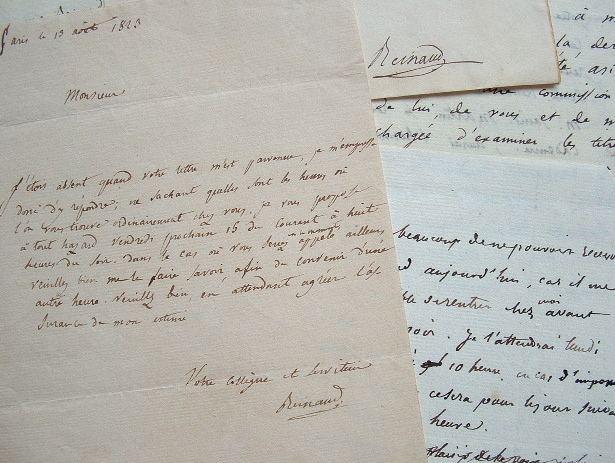 Paris le 13 août 1823
Monsieur
J'étois absent quand votre lettre m'est parvenue, je m'empresse
donc d'y répondre, ne sachant quelles sont les heures où
l'on vous trouve ordinairement chez vous, je vous propose
à tout hazard vendredi prochain 15 du courant à huit
heures du soir. dans le cas où vous seriez appelé ailleurs
veuillez bien me le faire savoir afin de convenir d'une
autre heure. Veuillez bien, en attendant agréer l'as
surance de mon estime
Votre collègue et serviteur
Reinaud
Reinaud
à
la, de
té as
une commission
de lui, de vous et de m
chargée d'examiner les titre
beaucoup de ne pouvoir recevoi
d aujourd'hui, car il me
ble de rentrer chez moi avant
soir. Je l'attendrai lundi
à 10 heures en cas d'impos
ce sera pour le jour suiva
heure.